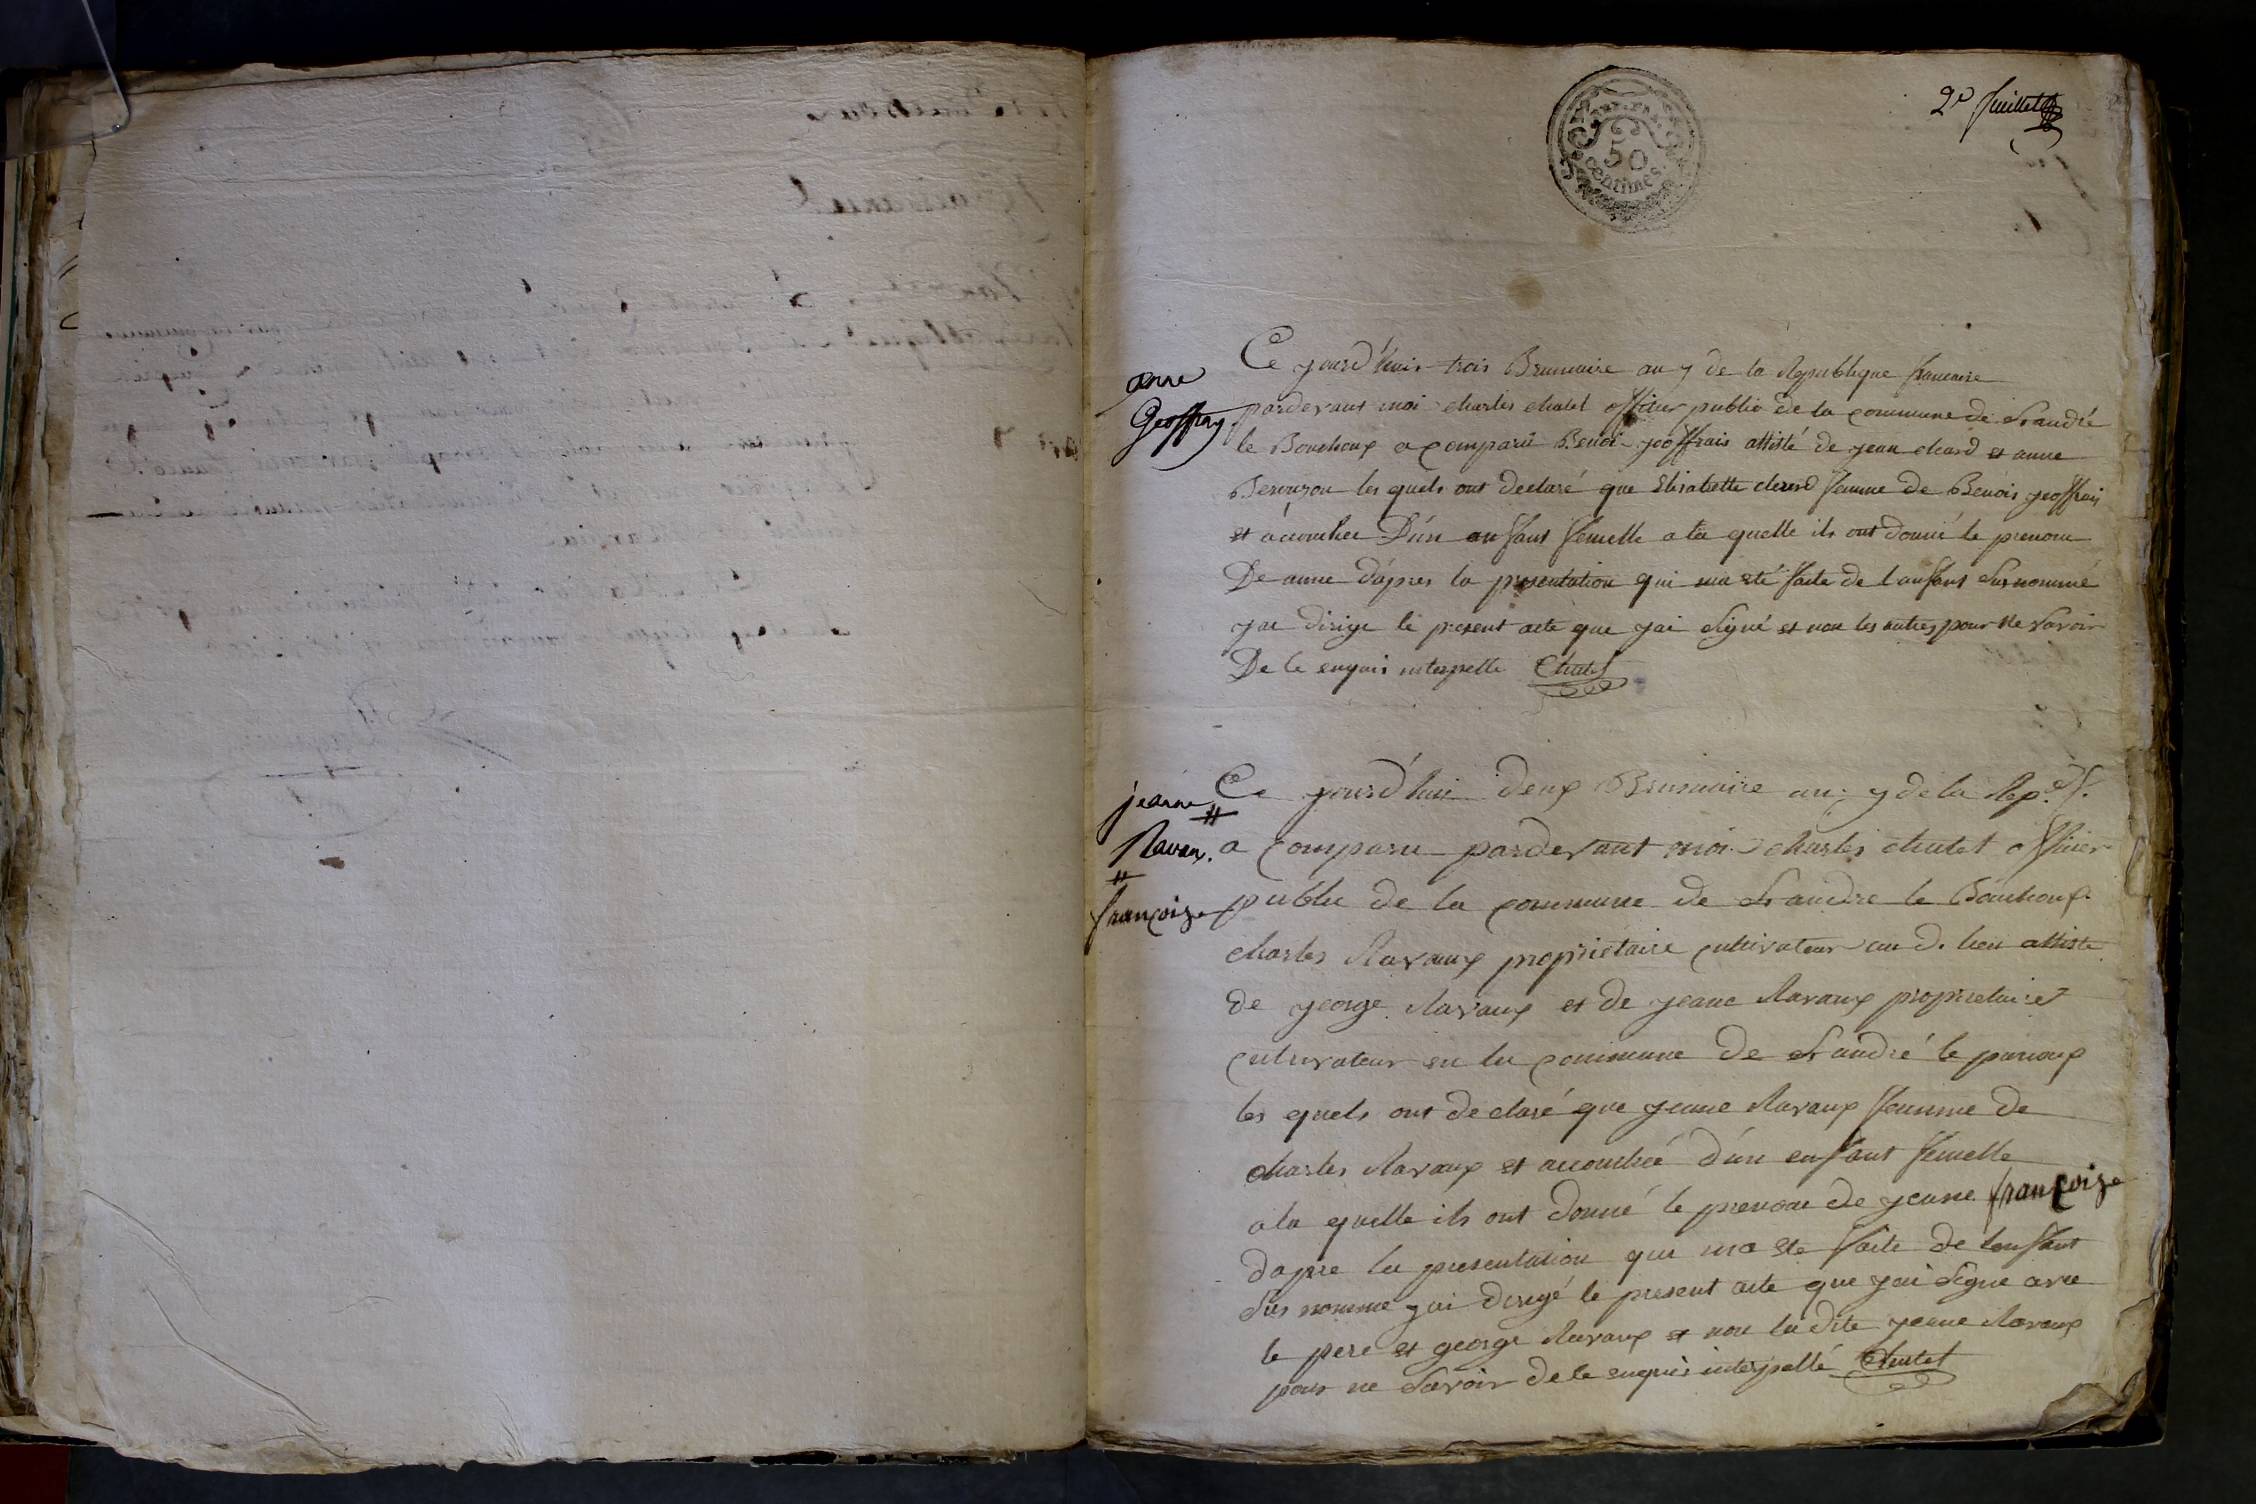 2e feuillet
50
centimes
anne
Geoffray
Ce jourd'huis trois Brumaire an 7 de la Republique francaise
pardevant moi charles chatel officier public de la commune de st andré
le Bouchoux a comparu Benoi geoffrais assisté de jean chard et anne
les quels ont declaré que Elisabette femme de Benois geoffrais
et acouchee D'un anfant femelle a la quelle ils ont donné le prenom
De anne d'apres la presentation qui ma eté faite de l anfant susnommé
jai dirige le present acte que jai signé et non les autres pour ne savoir
De le enquis interpelle Chatel
jeanne #
Ravaux.
#
françoise
Ce jourd'hui deux Brumaire an 7 de la Rep.e f.
a comparu pardevant moi charles chatel officier
public de la commune de st andre le Bouchoux
charles Ravaux propriétaire cultivateur au d. lieu assiste
de george Ravaux et de jeane Ravaux proprietaire
cultivateur en la commune de st andré le
les quels ont declaré que jeane Ravaux femme de
charles Ravaux et accouchée d'un enfant femelle
a la quelle ils ont donné le prenom de jeane françoise
dapre la presentation qui ma ete faite de lenfant
sus nomme jai dirigé le present acte que jai signe avec
le pere et george Ravaux et non la dite jeane Ravaux
pour ne savoir de le enquis interpellé Chatel